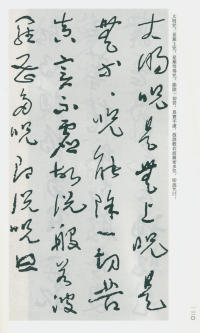 大明咒,是無上咒,是無等等咒,能除一切苦,真實不虛,故說般若波羅蜜多咒,即說咒曰:
大明咒是無上咒是
無等等咒能除一切苦
真實不虛故說般若波
羅蜜多咒即說咒曰